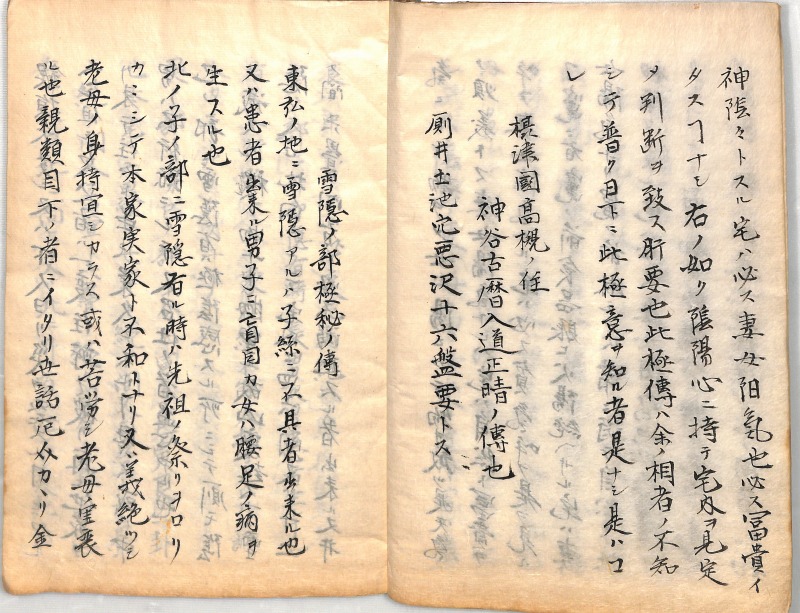 神陰々トスル宅ハ必ス妻女陽氣也必ス冨貴イ
タスヿナシ右ノ如ク陰陽心ニ持テ宅内ヲ見定
メ判断ヲ致ス肝要也此極傳ハ余ノ相者ノ不知
シテ普ク日下ニ此極意ヲ知ル者是ナシ是ハコ
レ
摂津國高槻ノ住
神谷古暦入道正晴ノ傳也
厠井土池穴悪沢廿六盤要トス
雪隠ノ部極秘ノ傳
東弘ノ地ニ雪隠アルハ子絲ニ不具者出来ル也
又ハ患者出来ル男子ニ盲目カ女ハ腰足ノ病ヲ
生スル也
北ノ子ノ部ニ雪隠有ル時ハ先祖ノ祭リヲロソ
カニシテ本家実家ト不和トナリ又ハ義絶ツシ
老母ノ身持宜シカラス或ハ苦労シ老母里喪
ル也親類目下ノ者ニイタリ世話厄介カヽリ金